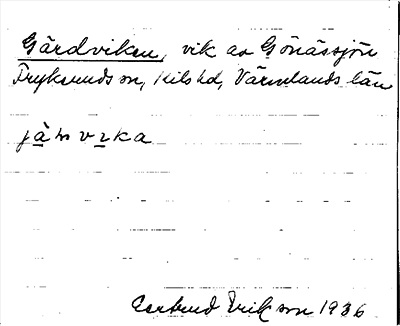 Gärdviken, vik av Gönässjön
Fryksunds sn, Kils hd, Värmlands län
jä̱ʜ vɩ̱ka
Gertrud Erikson 1936